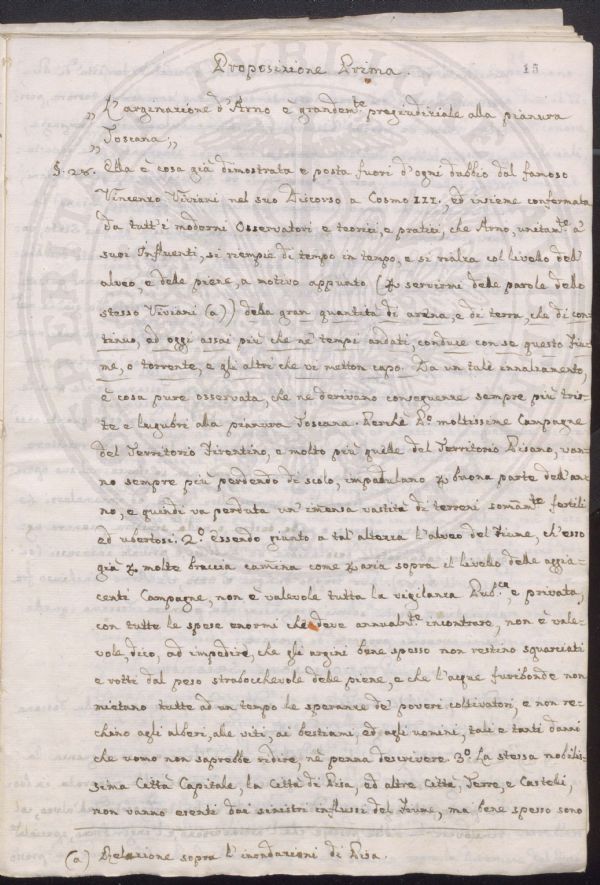 Proposizione Prima.
15
„ L'arginazione d'Arno è grandem.te pregiudiziale alla pianura
„ Toscana „
§. 28. Ella è cosa già dimostrata e posta fuori d'ogni dubbio dal famoso
Vincenzo Viviani nel suo Discorso a Cosmo III., ed insieme confermata
da tutt'i moderni Osservatori e teorici, e pratici, che Arno, unitam.te a'
suoi Influenti, si riempie di tempo in tempo, e si rialza col livello dell'
alveo, e delle piene, a motivo appunto (p servirmi delle parole dello
stesso Viviani (a)) della gran quantità di arena, e di terra, che di con-
tinuo, ed oggi assai più che ne' tempi andati, conduce con se questo Fiu-
me, o torrente, e gli altri che vi metton capo. Da un tale innalzamento,
è cosa pure osservata, che ne derivano conseguenze sempre più tris-
te e lugubri alla pianura Toscana. Perchè P.o moltissime Campagne
del Territorio Fiorentino, e molto più quelle del Territorio Pisano, van-
no sempre più perdendo di scolo, impadulano p buona parte dell'an-
no, e quindi va perduta un'imensa vastità di terreni somãm.te fertili
ed ubertosi. 2.o essendo giunto a tal altezza l'alveo del Fiume, ch'esso
già p molte braccia camina come p aria sopra il livello delle aggia-
centi Campagne, non è valevole tutta la vigilanza Pub.ca, e privata,
con tutte le spese enormi che deve annualm.te incontrare, non è vale-
vole, dico, ad impedire, che gli argini bene spesso non restino squarciati
e rotti dal peso strabocchevole delle piene, e che l'acque furibonde non
mietano tutte ad un tempo le speranze de' poveri coltivatori, e non re-
chino agli alberi, alle viti, ai bestiami, ed agli uomini, tali e tanti danni
che uomo non saprebbe ridire, nè penna descrivere. 3.o La stessa nobilis-
sima Città Capitale, la Città di Pisa, ed altre Città, Terre, e Castelli,
non vanno esenti dai sinistri influssi del Fiume, ma bene spesso sono
(a) Relazione sopra l'inondazioni di Pisa.